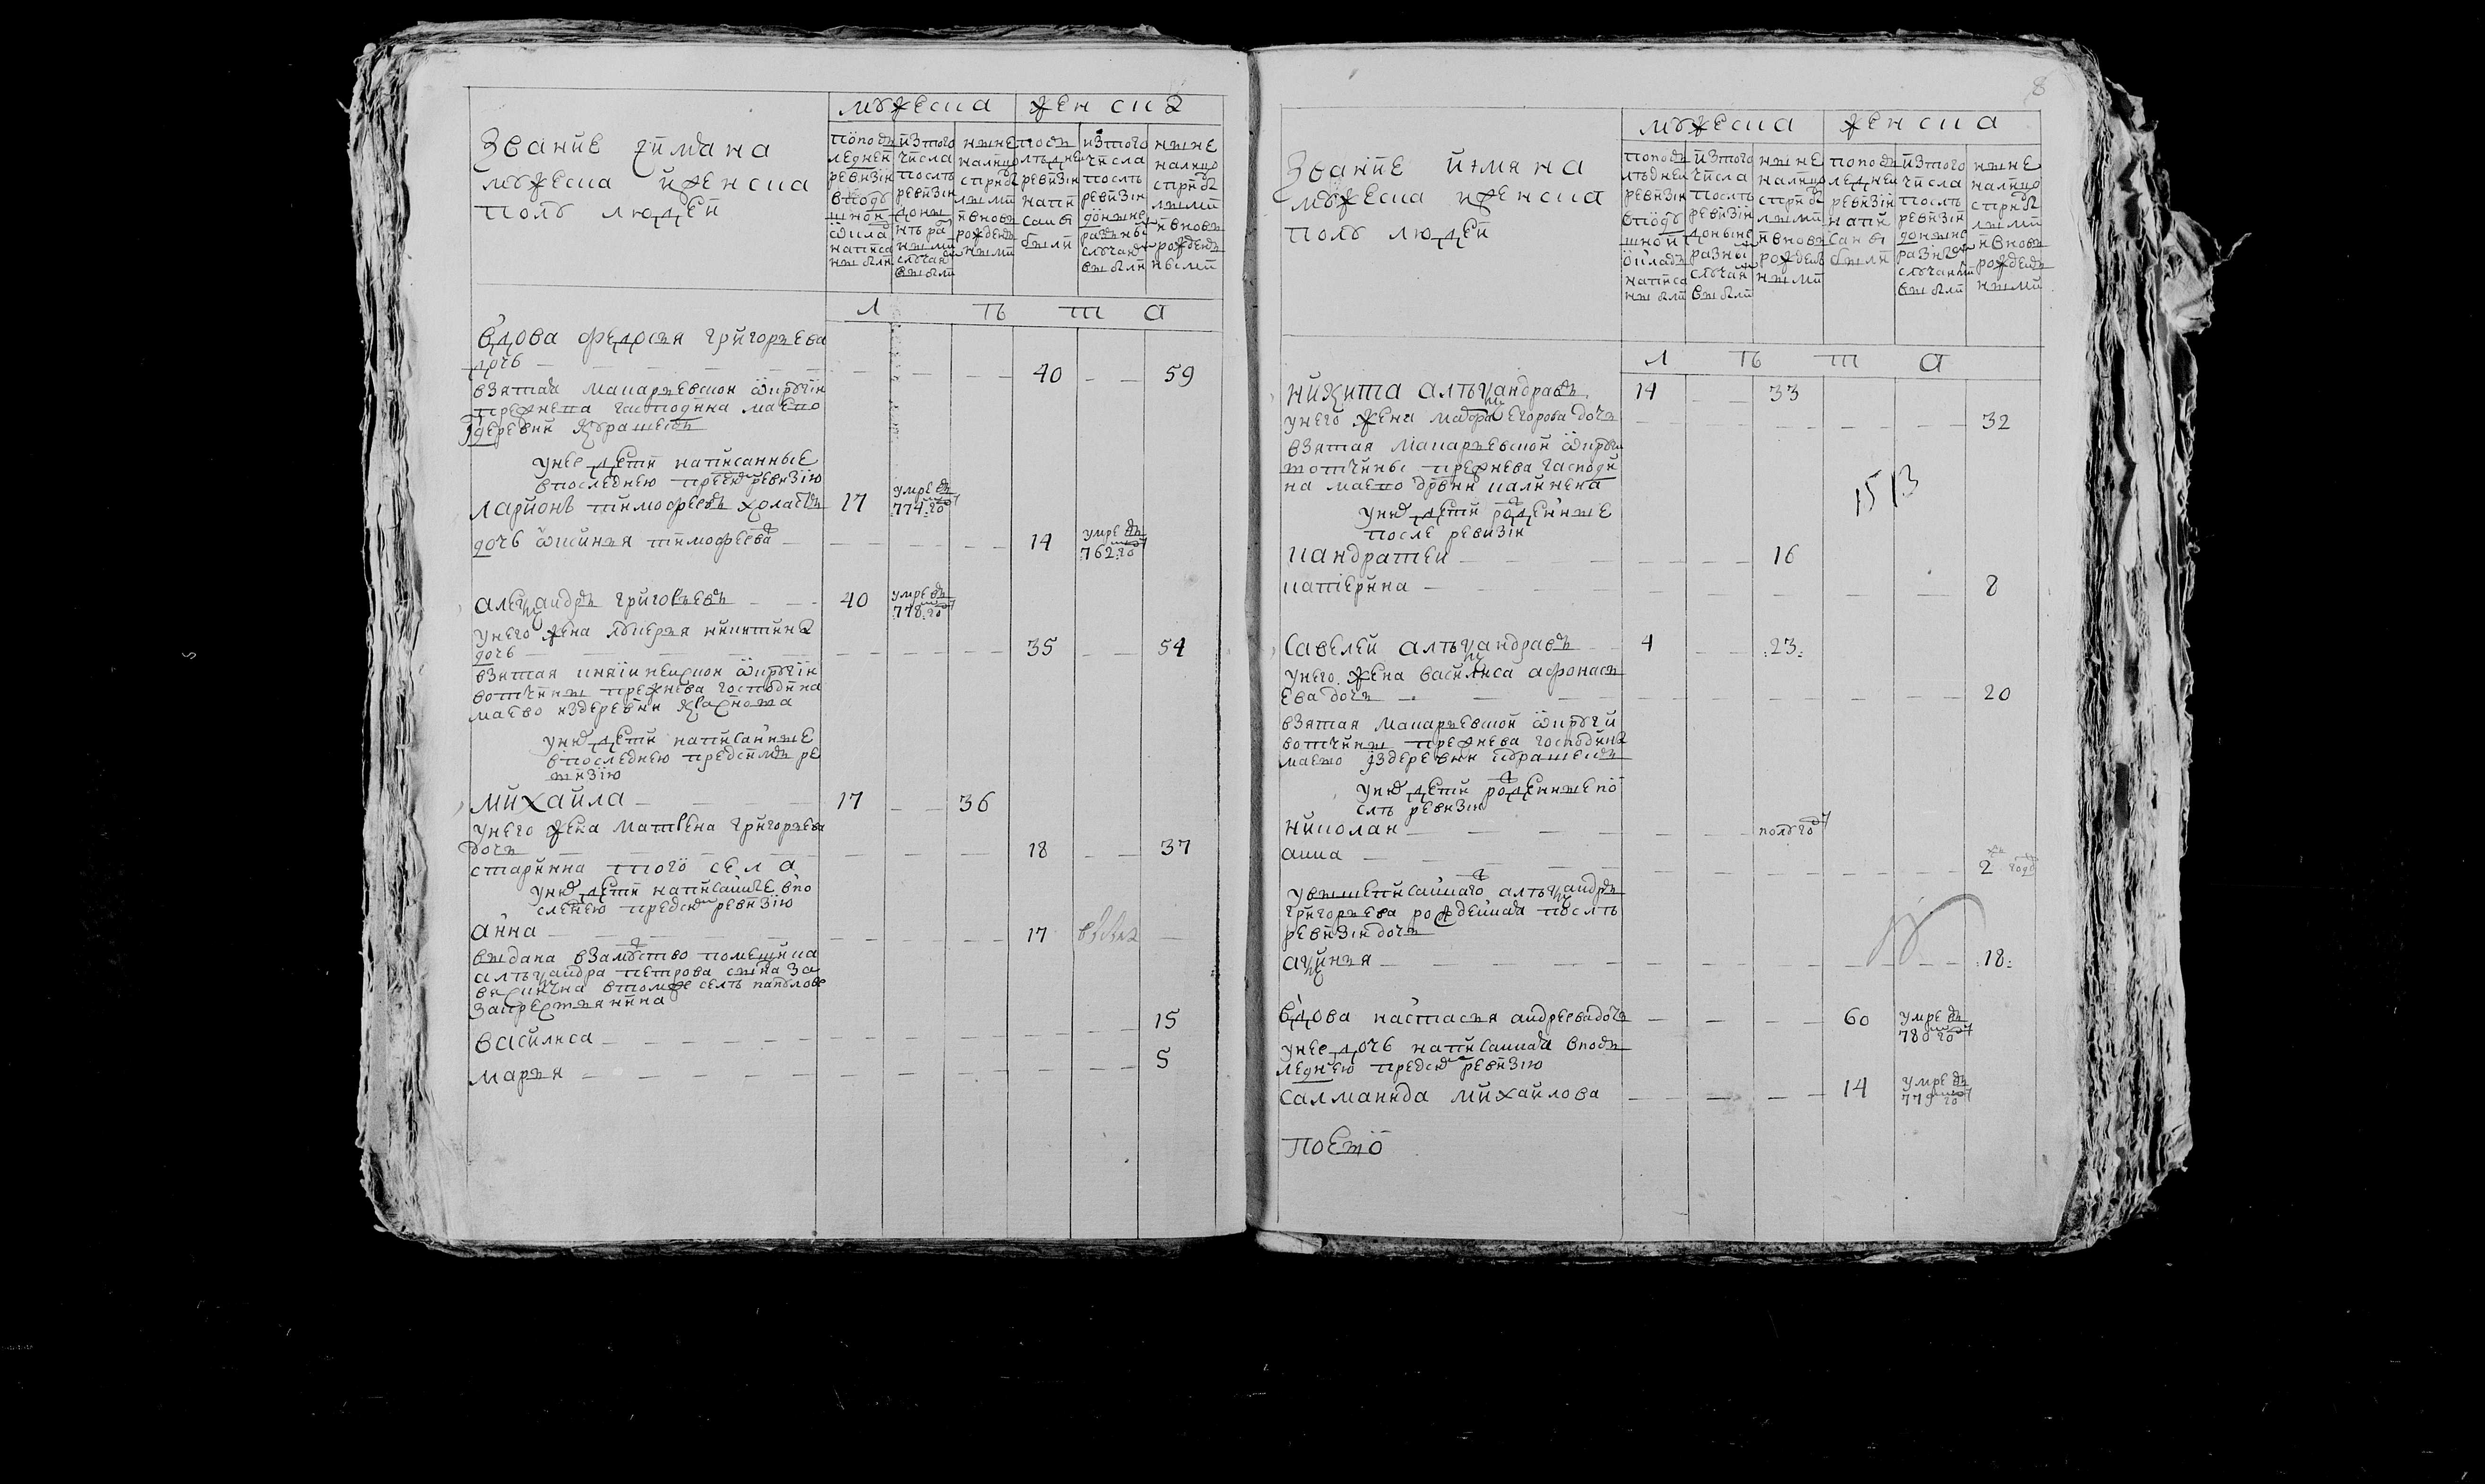 мужеска женска
Звание имяна
мужеска и женска
полу людей
попос
ледней
ревизіи
в поду
шной
окла
написа
ны были
изтого
числа
послѣ
ревизіи
доны
нѣ ра
ными
случаи
выбыли
ныне
налицо
с прибу
лыми
и вновь
рожден
ными
ревизіи
напи
саны
были
изтого
числа
послѣ
ревизіи
доныне
разными
случаи
выбыли
ныне
налицо
с прибу
лыми
и вновь
рожден
ными
л ѣ т а
вдова федосья григорьева
дочь 40 59
взятая макарьевской округи
прежнева гасподина маево
деревни курашек
унее дети написанные
впоследнею пред сею ревизiю
ларионъ тимофеевъ холастъ 17 умре въ
774 го
дочь тимофеева 14 умре въ
762 го
алеѯандръ григорьевъ 40 умре въ
778 го
унего жена лукерья никитина
дочь 35 54
взятая княгининской округи
вотчины прежнева господина
маево издеревни
уних дети написанные
впоследнею пред сим ре
визiю
михайла 17 36
унего жена матрена григорьева
дочь 18 37
старинна того села
уних дети написанные впо
следнею пред сею ревизiю
анна 17
выдана взамужство помещика
алѣѯандра петрова сына за
втомже селѣ
закрестьянина
василиса 15
марья 5
8
мужеска женска
Звание имяна
мужеска и женска
полу людей
попос
лѣдней
ревизіи
в поду
шной
оклад
написа
ны были
изтого
числа
послѣ
ревизіи
доныне
разны
случаи
выбыли
ныне
налицо
с прибу
лыми
и вновь
рожден
ными
попос
ледней
ревизіи
напи
саны
были
изтого
числа
послѣ
ревизіи
доныне
разны
случаими
выбыли
ныне
налицо
с прибу
лыми
и вновь
рожден
ными
л ѣ т а
никита алѣѯандравъ 14 33
унего жена егорова дочь 32
взятая макарьевской округи
вотчины прежнева гасподи
на маево дрвни калинена
1513
уних дети рожденные
после ревизіи
кандратеи 16
катерина 8
савелей алѣѯандравъ 4 23
унего жена василиса афонась
ева дочь 20
взятая макарьевской округи
вотчины прежнева господина
маево издеревни курашек
уних дети рожденные по
слѣ ревизіи
николаи полугоду
анна 2
увышеписаннаго алѣѯандра
григорьева рожденная послѣ
ревизіи дочь
аѯинья 18
вдова настасья андреева дочь 60 умре въ
780 го
унее дочь написанная впос
леднею пред сею ревизiю
саламанида михаилова 14 умре въ
779 го